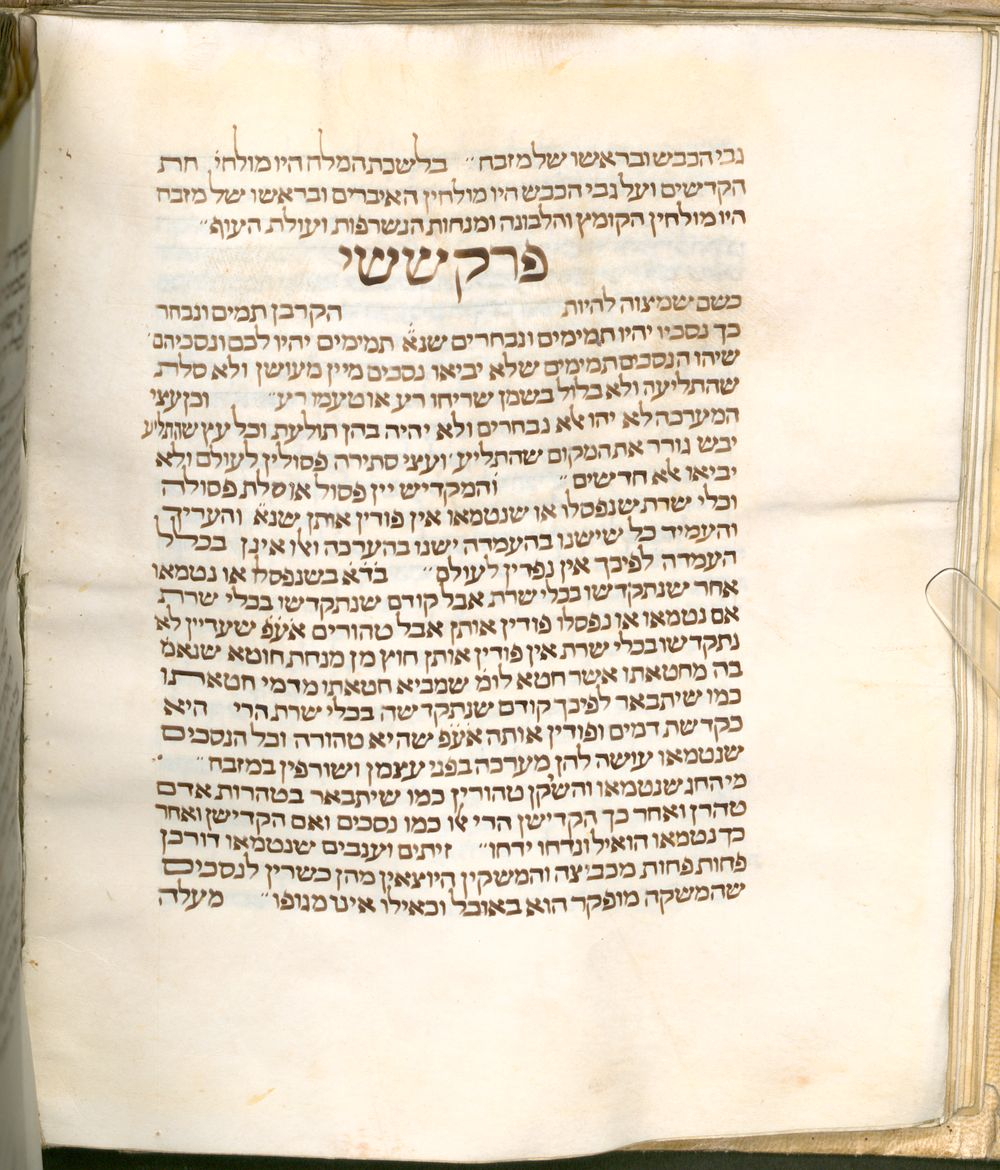 גבי הכבש ובראשו של מזבח ״ בלשכת המלח היו מולחי׳ חרת
הקדשים ועל גבי הכבש היו מולחין האיברים ובראשו של מזבח
היו מולחין הקומץ והלבונה ומנחות הנשרפות ועולת העוף ״
פרק ששי
כשם שמצוה להיות הקרבן תמים ונבחר
כך נסכיו יהיו תמימים ונבחרים שנא׳ תמימים יהיו לכם ונסכיהם
שיהו הנסכים תמימים שלא יביאו נסכים מיין מעושן ולא סלת
שהתליעה ולא בלול בשמן שריחו רע או טעמו רע ״ וכן עצי
המערכה לא יהו אלא נבחרים ולא יהיה בהן תולעת וכל עץ שהתליע
יבש גורר את המקום שהתליע ׳ ועצי סתירה פסולין לעולם ולא
יביאו אלא חדשים ״ והמקדיש יין פסול או סלת פסולה
וכלי שרת שנפסלו או שנטמאו אין פודין אותן שנא׳ והעריך
והעמיד כל שישנו בהעמדה ישנו בהערכה ואלו אינן בכלל
העמדה לפיכך אין נפדין לעולם ״ בד״א בשנפסלו או נטמאו
אחר שנתקדשו בכלי שרת אבל קודם שנתקדשו בכלי שרת
אם נטמאו או נפסלו פודין אותן אבל טהורים אע״פ שעדיין לא
נתקדשו בכלי שרת אין פודין אותן חוץ מן מנחת חוטא שנאמ׳
בה מחטאתו אשר חטא לומ׳ שמביא חטאתו מדמי חטאתו
כמו שיתבאר לפיכך קודם שנתקדשה בכלי שרת הרי היא
כקדשת דמים ופודין אותה אע״פ שהיא טהורה וכל הנסכים
שנטמאו עושה להן מערכה בפני עצמן ושורפין במזבח ״
מי החג שנטמאו והשקן טהורין כמו שיתבאר בטהרות אדם
טהרן ואחר כך הקדישן הרי אלו כמו נסכים ואם הקדישן ואחר
כך נטמאו הואיל ונדחו ידחו ״ זיתים וענבים שנטמאו דורכן
פחות פחות מכביצה והמשקין היוצאין מהן כשרין לנסכים
שהמשקה מופקר הוא באוכל וכאילו אינו מגופו ״ מעלה